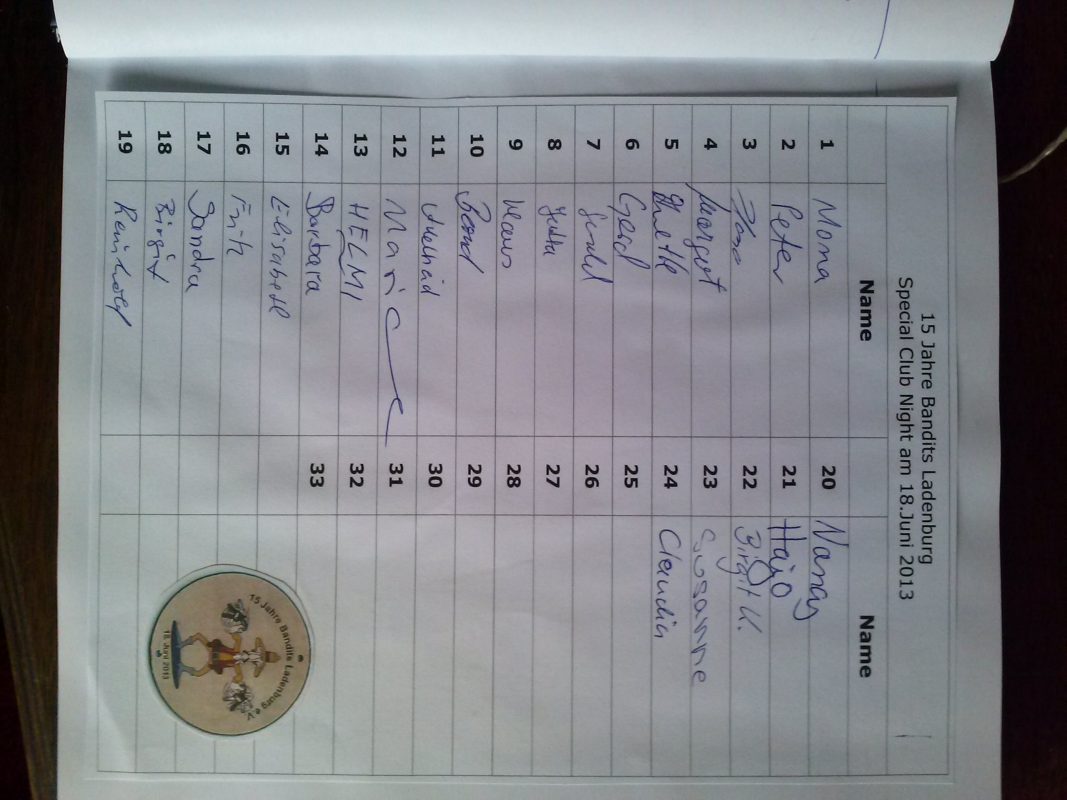 15 Jahre Bandits Ladenburg
Special Club Night am 18.Juni 2013
Name Name
1 Mona 20 Nanay
2 Peter 21 Hajo
3 22 Birgit K.
4 Margot 23 Susanne
5 24 Claudia
6 Gerd 25
7 26
8 Jutta 27
9 Klaus 28
10 Bernd 29
11 Adelheid 30
12 Marie 31
13 HELMI 32
14 Barbara 33
15 Elisabeth
16 Fritz
17 Sandra
18 Birgit
19 Reinhold
15 Jahre Bandits Ladenburg e.V.
18. Juni 2013